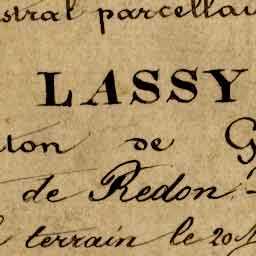 stral parcellai
LASSY
ton de G
de Redon.
terrain le 20